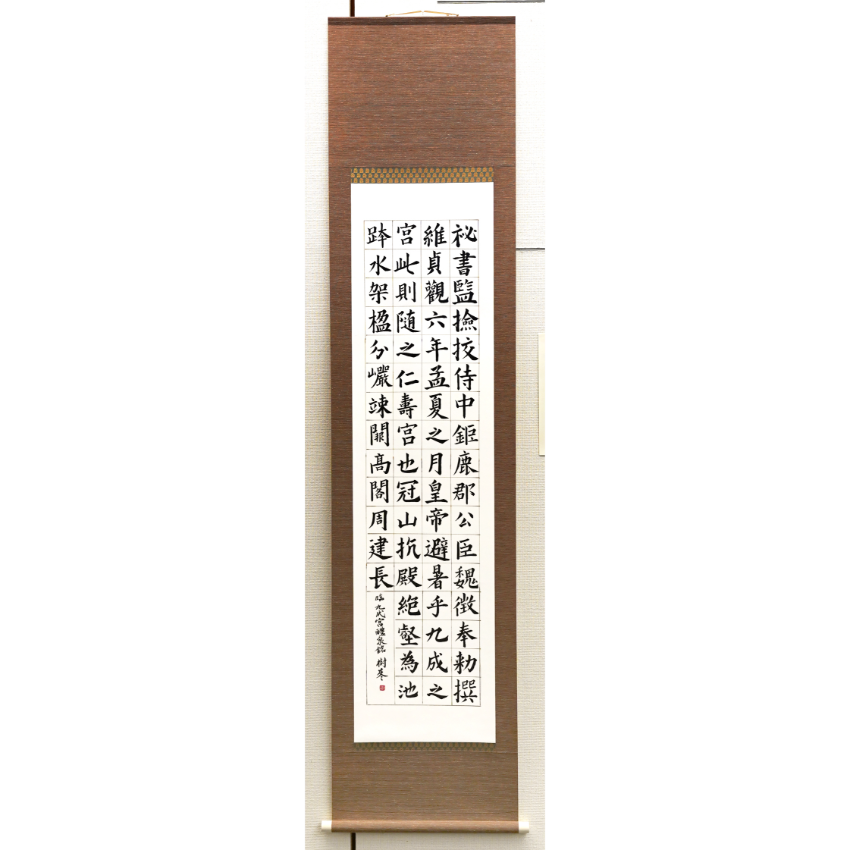 祕書監撿挍侍中鉅鹿郡公臣魏徵奉勅撰
維貞觀六年孟夏之月皇帝避暑乎九成之
宮此則随之仁壽宮也冠山抗殿絶壑為池
跨水架楹分巗竦闕高閣周建長
臨九成宮醴泉銘 樹